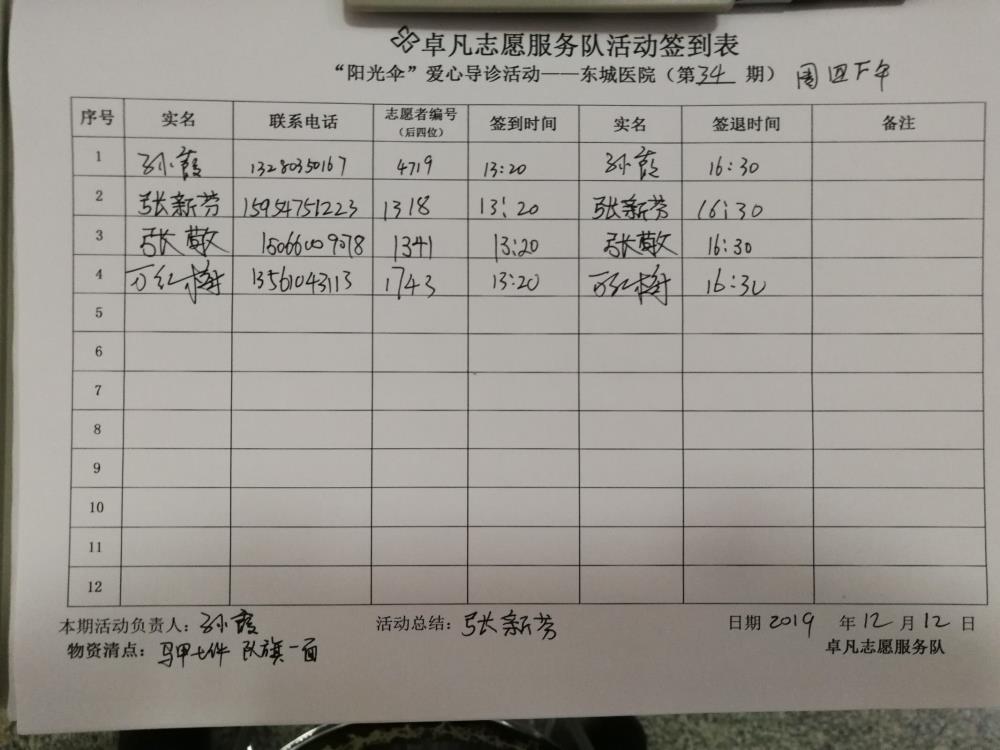 卓凡志愿服务队活动签到表
“阳光伞”爱心导诊活动——东城医院（第34期） 周四下午
序号 实名 联系电话 志愿者编号（后四位） 签到时间 实名 签退时间 备注
1 孙霞 13280350167 4719 13:20 孙霞 16:30
2 张新芳 15954751223 1318 13:20 张新芳 16:30
3 张敬 15066009078 1341 13:20 张敬 16:30
4 万红梅 13561043113 1743 13:20 万红梅 16:30
5
6
7
8
9
10
11
12
本期活动负责人：孙霞 活动总结：张新芳 日期 2019 年 12 月 12 日
物资清点：马甲七件 队旗一面 卓凡志愿服务队